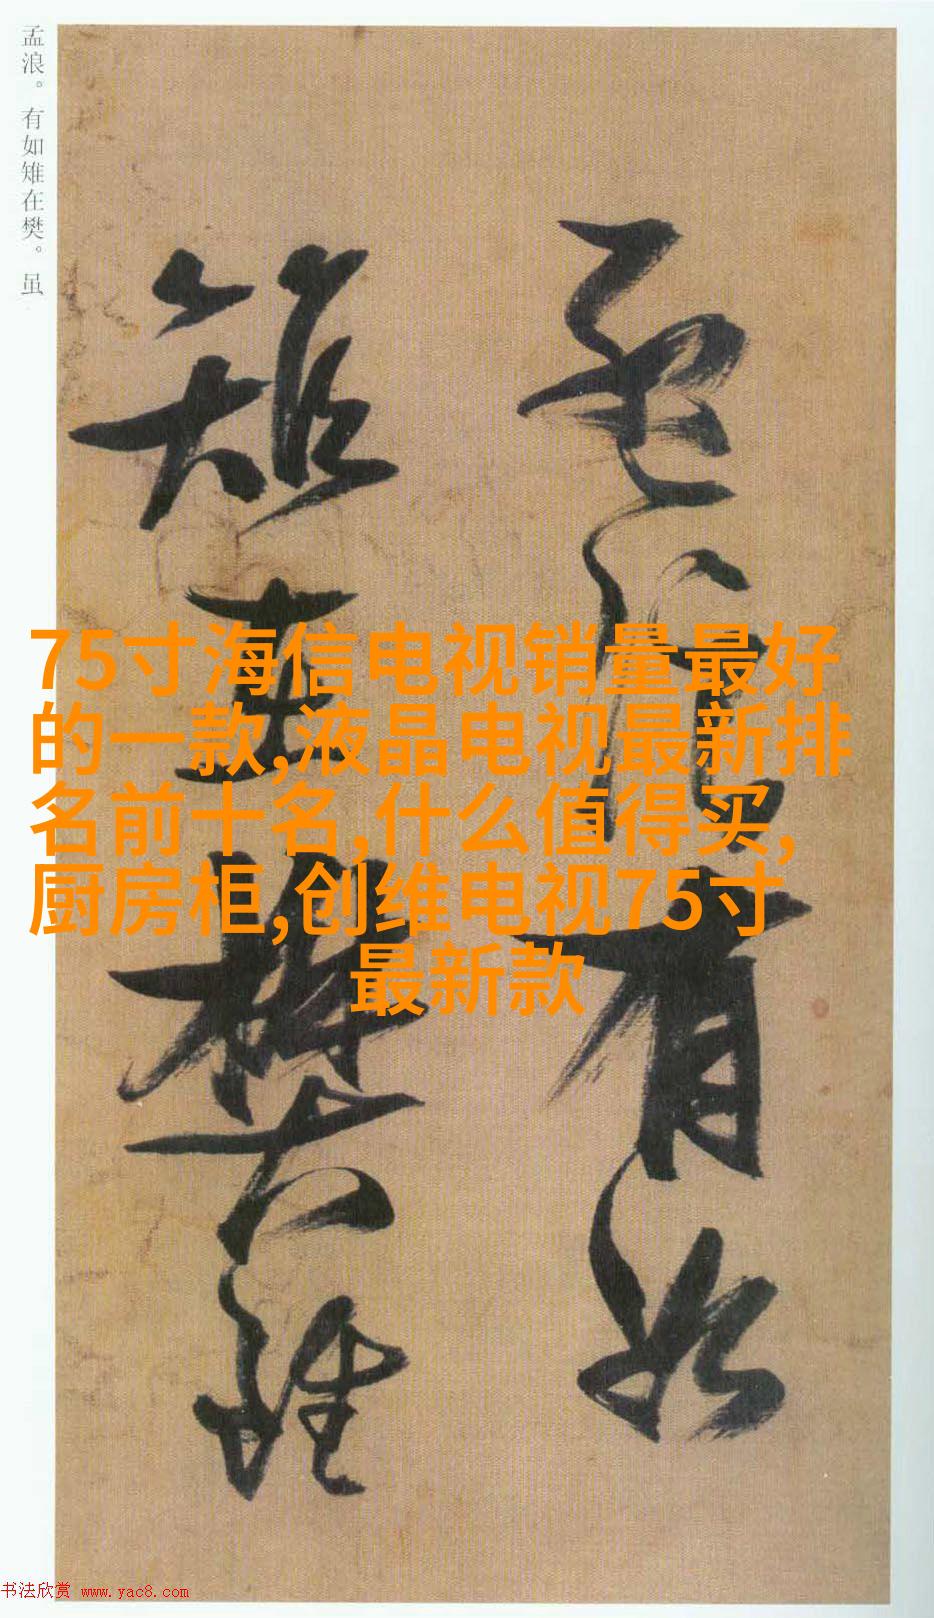 孟浪。有如雉在樊。虽
孟浪有如
雉在樊虽
75寸海信电视销量最好
的一款,液晶电视最新排
名前十名,什么值得买,
厨房柜,创维电视75寸
最新款
书法欣赏 www.yac8.com